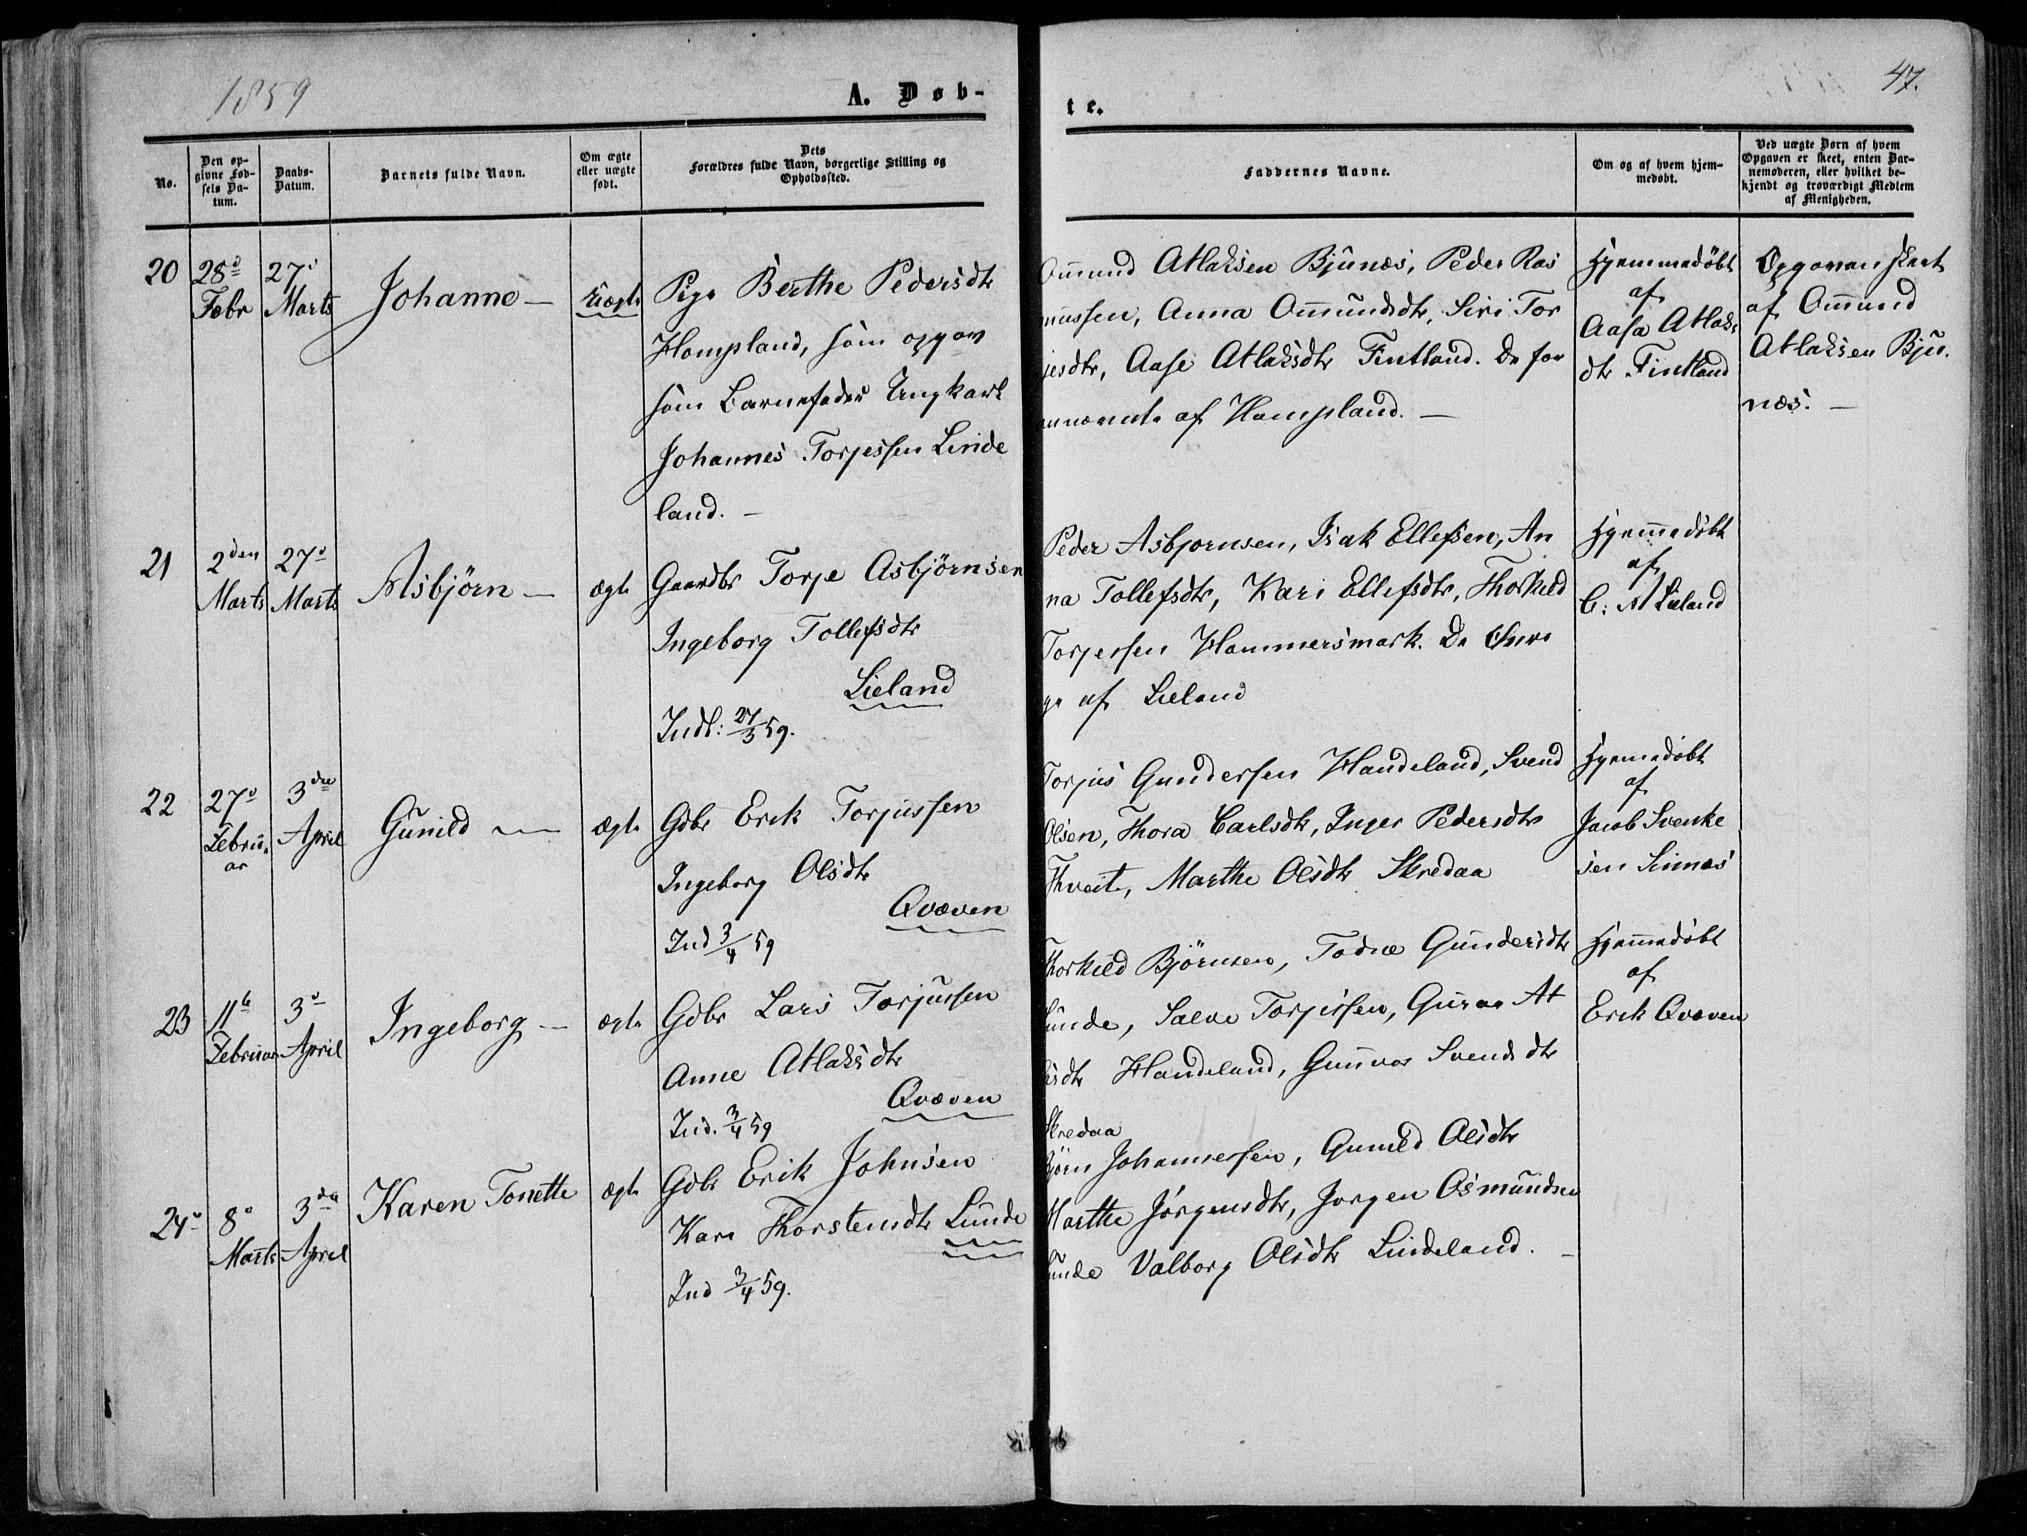 1859
A. Døb-
te.
47.
No.
Den op-
givne Fød-
sels Da-
tum.
Daabs-
Datum.
Barnets fulde Navn.
Om ægte
eller uægte
født.
Dets
Forældres fulde Navn, borgerlige Stilling og
Opholdssted.
Faddernes Navne.
Om og af hvem hjem-
medøbt.
Ved uægte Børn af hvem
Opgaven er skeet, enten Bar-
nemoderen, eller hvilket be-
kjendt og troværdigt Medlem
af Menigheden.
20
28d
Febr
27d
Marts
Johanne —
Uægte
Pige Berthe Pedersdtr
Hompland, som opgav
som Barnefader Ungkarl
Johannes Torjessen Linde
land. —
Omund Atlaksen Bjunes, Peder Ras
mussen, Anna Omundsdtr, Siri Tor
jesdtr, Aase Atlaksdtr Fintland. De for
nnævnte af Hompland. —
Hjemmedøbt
af
Aasa Atlaks
dtr Fintland
Opgaven skeet
af Omund
Atlaksen Bju
næs. —
21
2den
Marts
27d
Marts
Asbjörn —
ægte
Gaardbr Torje Asbjörnsen
Ingeborg Tollefsdtr
Lieland
Indl: 27/3 59.
Peder Asbjornsen, Isak Ellefsen, An
na Tollefsdtr, Kari Ellefsdtr, Thorkild
Torjessen Hammersmark. De Øvri
ge af Lieland
Hjemmedöbt
af
C: A Lieland
22
27d
Februar
3die
April
Gunild —
ægte
Gdbr Erik Torjussen
Ingeborg Olsdtr
Qvæven
Ind 3/4 59
Torjus Gundersen Handeland, Svend
Olsen, Thora Carlsdtr, Inger Pedersdtr
Thveit, Marthe Olsdtr Skredaa
Hjemmedøbt
af
Jacob Svenke
sen Sinnes
23
11te
Februar
3d
April
Ingeborg —
ægte
Gdbr Lars Torjussen
Anne Atlaksdtr
Qvæven
Ind. 3/4 59
Thorkild Björnsen, Todne Gundersdtr
Lunde, Salve Torjessen, Guroe At
laksdtr Handeland, Gunvor Svendsdtr
Skredaa
Hjemmedøbt
af
Erik Qvæven
24
8d
Marts
3die
April
Karen Tonette
ægte
Gdbr Erik Johnsen
Kari Thorstendtr Lunde
Ind 3/4 59.
Bjørn Johannessen, Gunild Olsdtr
Marthe Jörgensdtr, Jorgen Osmundsen
Lunde Valborg Olsdtr Lindeland. —